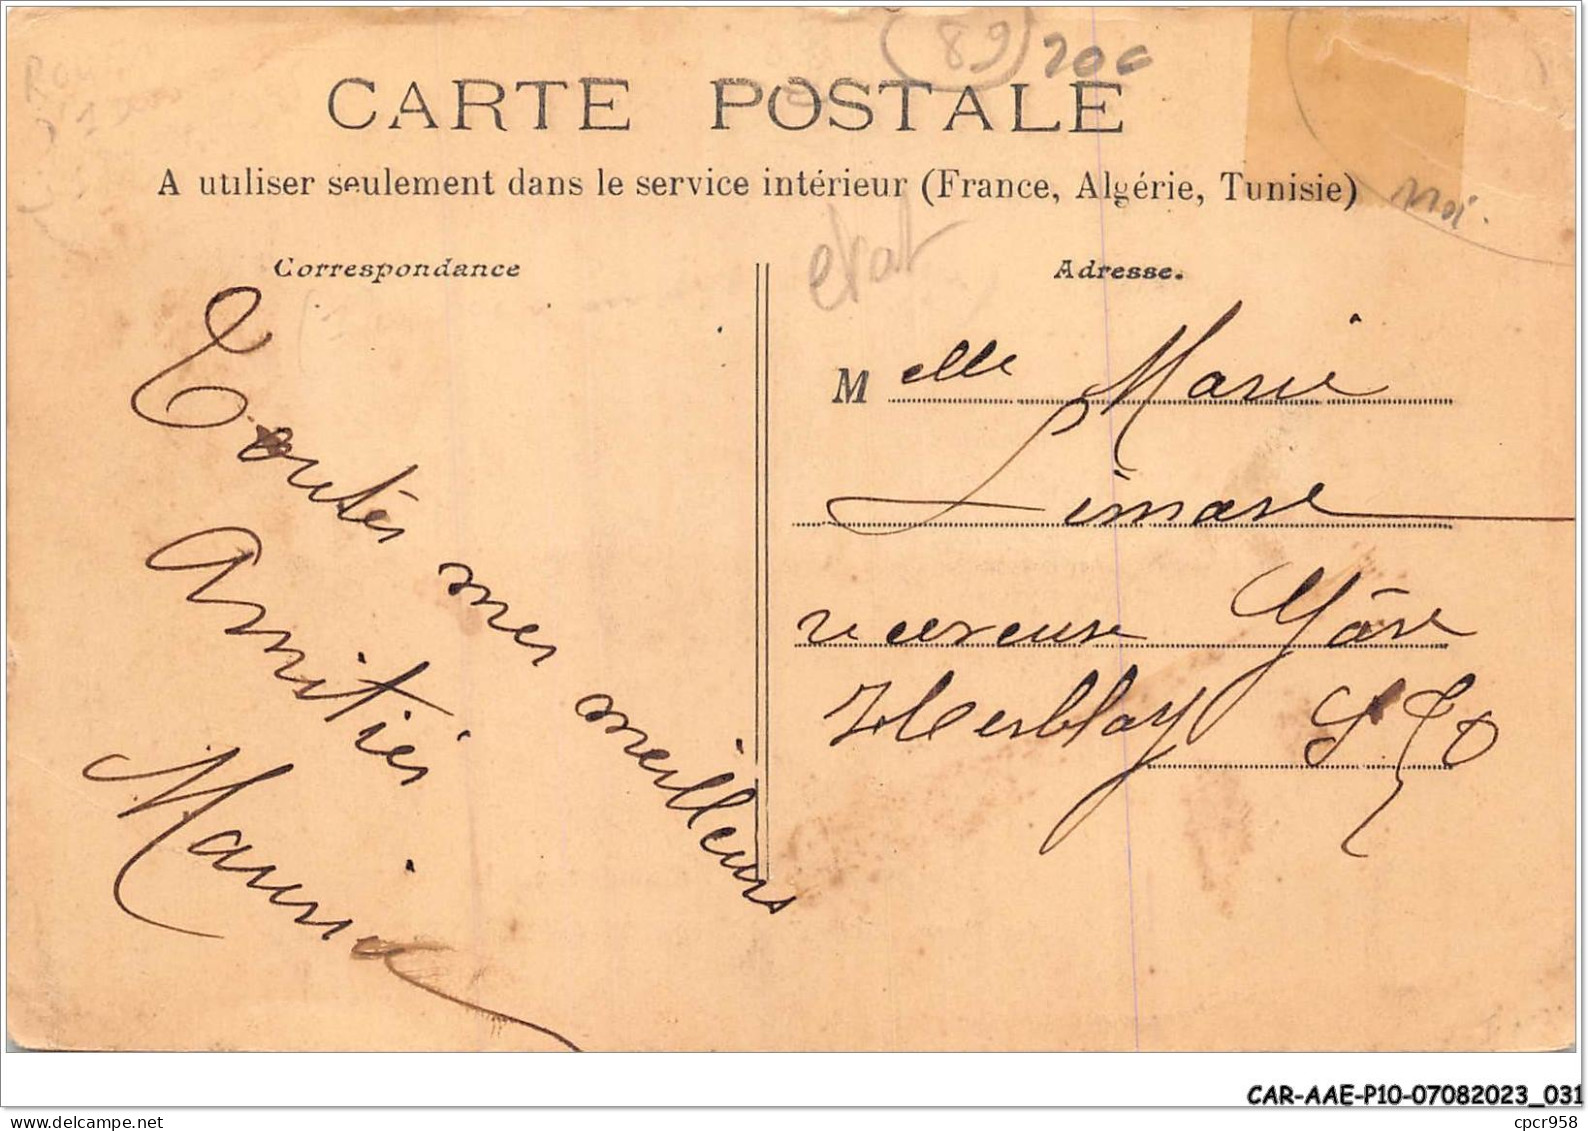 (89) 20c
CARTE POSTALE
A utiliser seulement dans le service intérieur (France, Algérie, Tunisie)
état
Correspondance
Toutes mes meilleurs
Amitiés
Maurice
Adresse.
Melle Marie
Limase
receveuse Gâre
Herblay S & O
CAR-AAE-P10-07082023_031
cpcr958